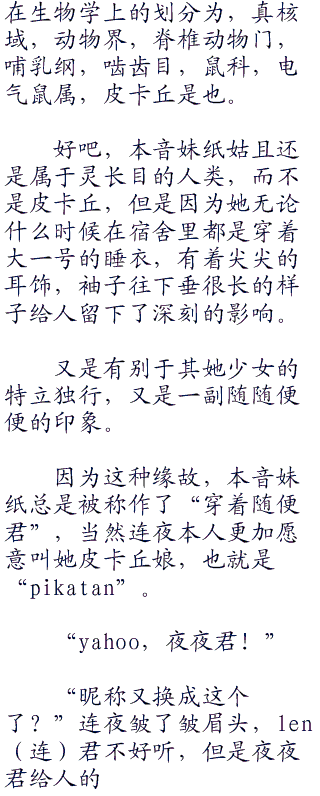 在生物学上的划分为，真核
域，动物界，脊椎动物门，
哺乳纲，啮齿目，鼠科，电
气鼠属，皮卡丘是也。
好吧，本音妹纸姑且还
是属于灵长目的人类，而不
是皮卡丘，但是因为她无论
什么时候在宿舍里都是穿着
大一号的睡衣，有着尖尖的
耳饰，袖子往下垂很长的样
子给人留下了深刻的影响。
又是有别于其她少女的
特立独行，又是一副随随便
便的印象。
因为这种缘故，本音妹
纸总是被称作了“穿着随便
君”，当然连夜本人更加愿
意叫她皮卡丘娘，也就是
“pikatan”。
“yahoo，夜夜君！”
“昵称又换成这个
了？”连夜皱了皱眉头，len
（连）君不好听，但是夜夜
君给人的